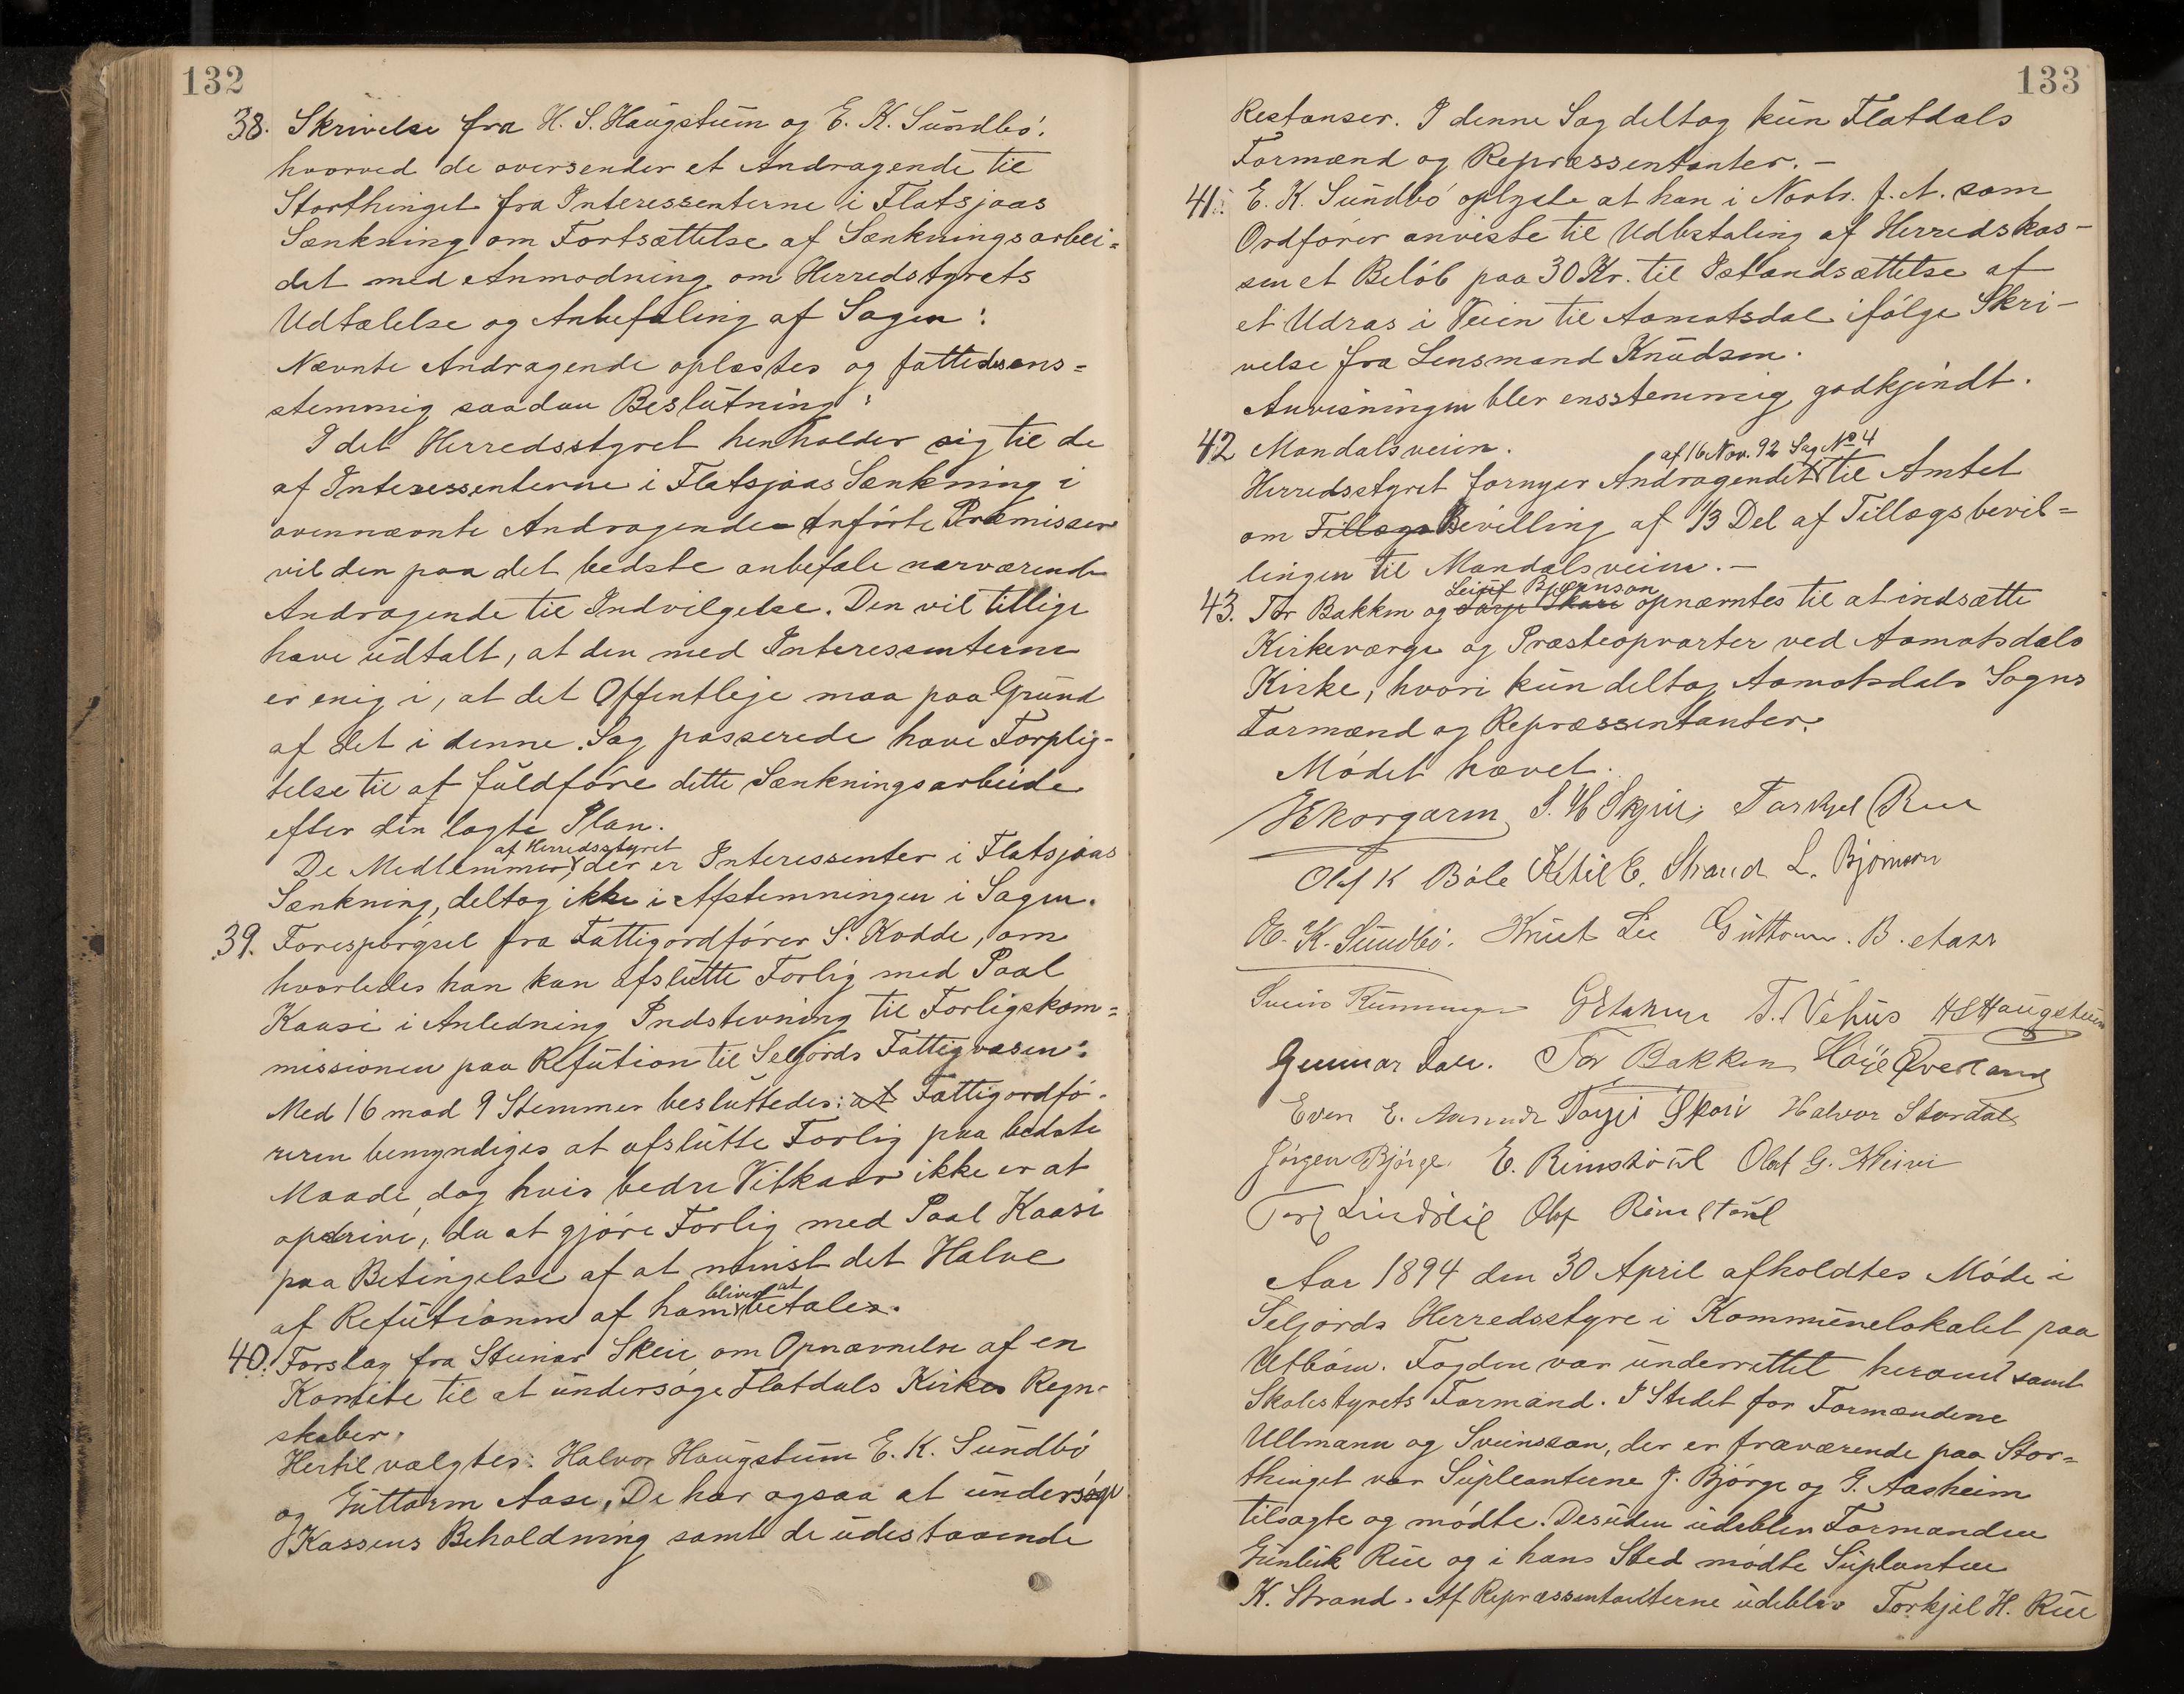 132
38. Skrivelse fra H. S. Haugstum og E. K. Sundbó.
hvorved de oversender et Andragende til
Storthinget fra Interessenterne i Flatsjaas
Sænkning om Fortsættelse af Sænkningsarbei=
det med Anmodning om Herredstyrets
Udtalelse og Anbefaling af Sagen:
Nævnte Andragende oplæstes og fattedes ens=
stemmig saadan Beslutning:
I det Herredsstyret henholder sig til de
af Interessenterne i Flatsjaas Sænkning i
ovennævnte Andragende anførte Præmisser
vil den paa det bedste anbefale nærværende
Andragende til Indvilgelse. Den vil tillige
have udtalt, at den med Interessenterne
er enig i, at det Offentlige maa paa Grund
af det i denne Sag passerede have Forplig-
telse til at fuldføre dette Sænkningsarbeide
efter den lagte Plan.
De Medlemmer af Herredsstyret der er Interessenter i Flatsjaas
Sænkning, deltog ikke i Afstemningen i Sagen.
39. Forespørgsel fra Fattigordfører S. Kodde, om
hvorledes han kan afslutte Forlig med Paal
Kaasi i Anledning Indstevning til Forligskom=
missionen paa Refution til Seljords Fattigvæsen:
Med 16 mod 9 Stemmer besluttedes: at Fattigordfó-
reren bemyndiges at afslutte Forlig paa bedste
Maade, dog hvis bedre Vilkaar ikke er at
opdrive, da at gjøre Forlig med Paal Kaasi
paa Betingelse af at minst det Halve
af Refutionen af ham bliver at betales.
40. Forslag fra Steinar Skeie om Opnævnelse af en
Komite til at undersøge Flatdals Kirkes Regn-
skaber.
Hertil valgtes: Halvor Haugstum E. K. Sundbó
og Guttorm Aase. De har ogsaa at undersøge
Kassens Beholdning samt de udestaaende
133
Restanser. I denne Sag deltog kun Flatdals
Formænd og Repræssentanter. –
41. E. K. Sundbó oplyste at han i Novbr. f. A. som
Ordfører anviste til Udbetaling af Herredskas-
sen et Beløb paa 30 Kr. til Istandsættelse af
et Udras i Veien til Aamotsdal ifølge Skri-
velse fra Lensmand Knudsen.
Anvisningen blev ensstemmig godkjendt.
42 Mandalsveien.
Herredsstyret fornyer Andragendet af 16 Nov. 92 Sag No 4 til Amtet
om Tillægs Bevilling af 1/3 Del af Tillægsbevil=
lingen til Mandalsveien. –
43. Tor Bakken og Torje Skare Leiuf Bjørnson opnævntes til at indsætte
Kirkeværge og Præsteopvarter ved Aamotsdals
Kirke, hvori kun deltog Aamotsdals Sogns
Formænd og Repræssentanter.
Mødet hævet.
Torkjel Rue
Olaf K Bøle Ketil E. Strand L. Bjørnson
E. K. Sundbó. Knut Lie Guttorm B. Aase
T. Nehus HSHaugstum
Gunnar Dale. Tor Bakken Høije Øverland
Even E. Torjei Skori Halvor Stordal
Jørgen Bjørge. E. Rimstøul Olaf G. Kleivi
Olaf Rimstøul
Aar 1894 den 30 April afholdtes Møde i
Seljords Herredsstyre i Kommunelokalet paa
Utbøen. Fogden var underrettet herom samt
Skolestyrets Formand. I Stedet for Formændene
Ullmann og Sveinsson, der er fraværende paa Stor=
thinget var Supleanterne J. Bjørge og G. Aasheim
tilsagte og mødte. Desuden udeblev Formanden
Gunleik Rue og i hans Sted mødte Suplanten
K. Strand. Af Repræssentanterne udeblev Torkjel H. Rue